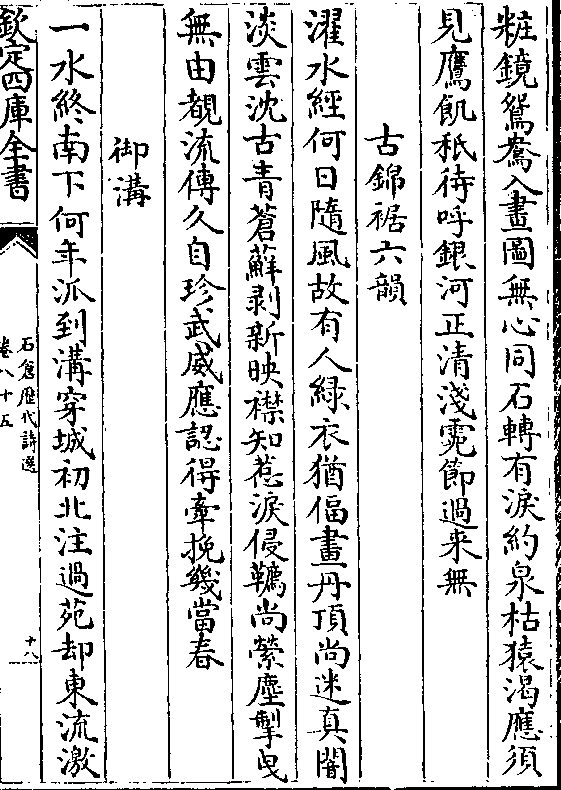 粧鏡鴛鴦入畫圖無心同石轉有淚約泉枯猿渴應須
見鷹飢秖待呼銀河正清淺霓節過来無
古錦裾六韻
濯水經何日隨風故有人緑衣猶偪畫丹頂尚迷真闇
淡雲沈古青蒼蘚剥新映襟知惹淚侵韉尚縈塵掣曳
無由覩流傳久自珍武威應認得牽挽幾當春
御溝
一水終南下何年派到溝穿城初北注過苑却東流激
欽定四庫全書
石倉歴代詩選
卷八十五
十八